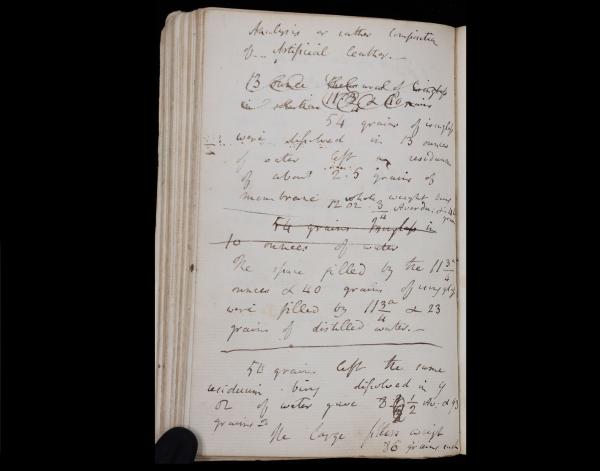 Analysis or rather composition
of Artificial leather. —
13 ounce
in solution 11 3/4 & 10 grains
54 grains of isinglass
were dissolved in 13 ounces
of water left a residuum
of about 2.5 grains of
membrane whole weight
12 oz. 3/4 Averdu.
54 grains Isinglass in
10 ounces of water
The space filled by the 11 3/4
ounces & 40 grains of isinglass
were filled by 11 3/4 & 23
grains of distilled water. —
54 grains left the same
residuum being dissolved in 9
oz of water gave 8 1/2 Av: & 43
grains
The large weigh
36 grains each